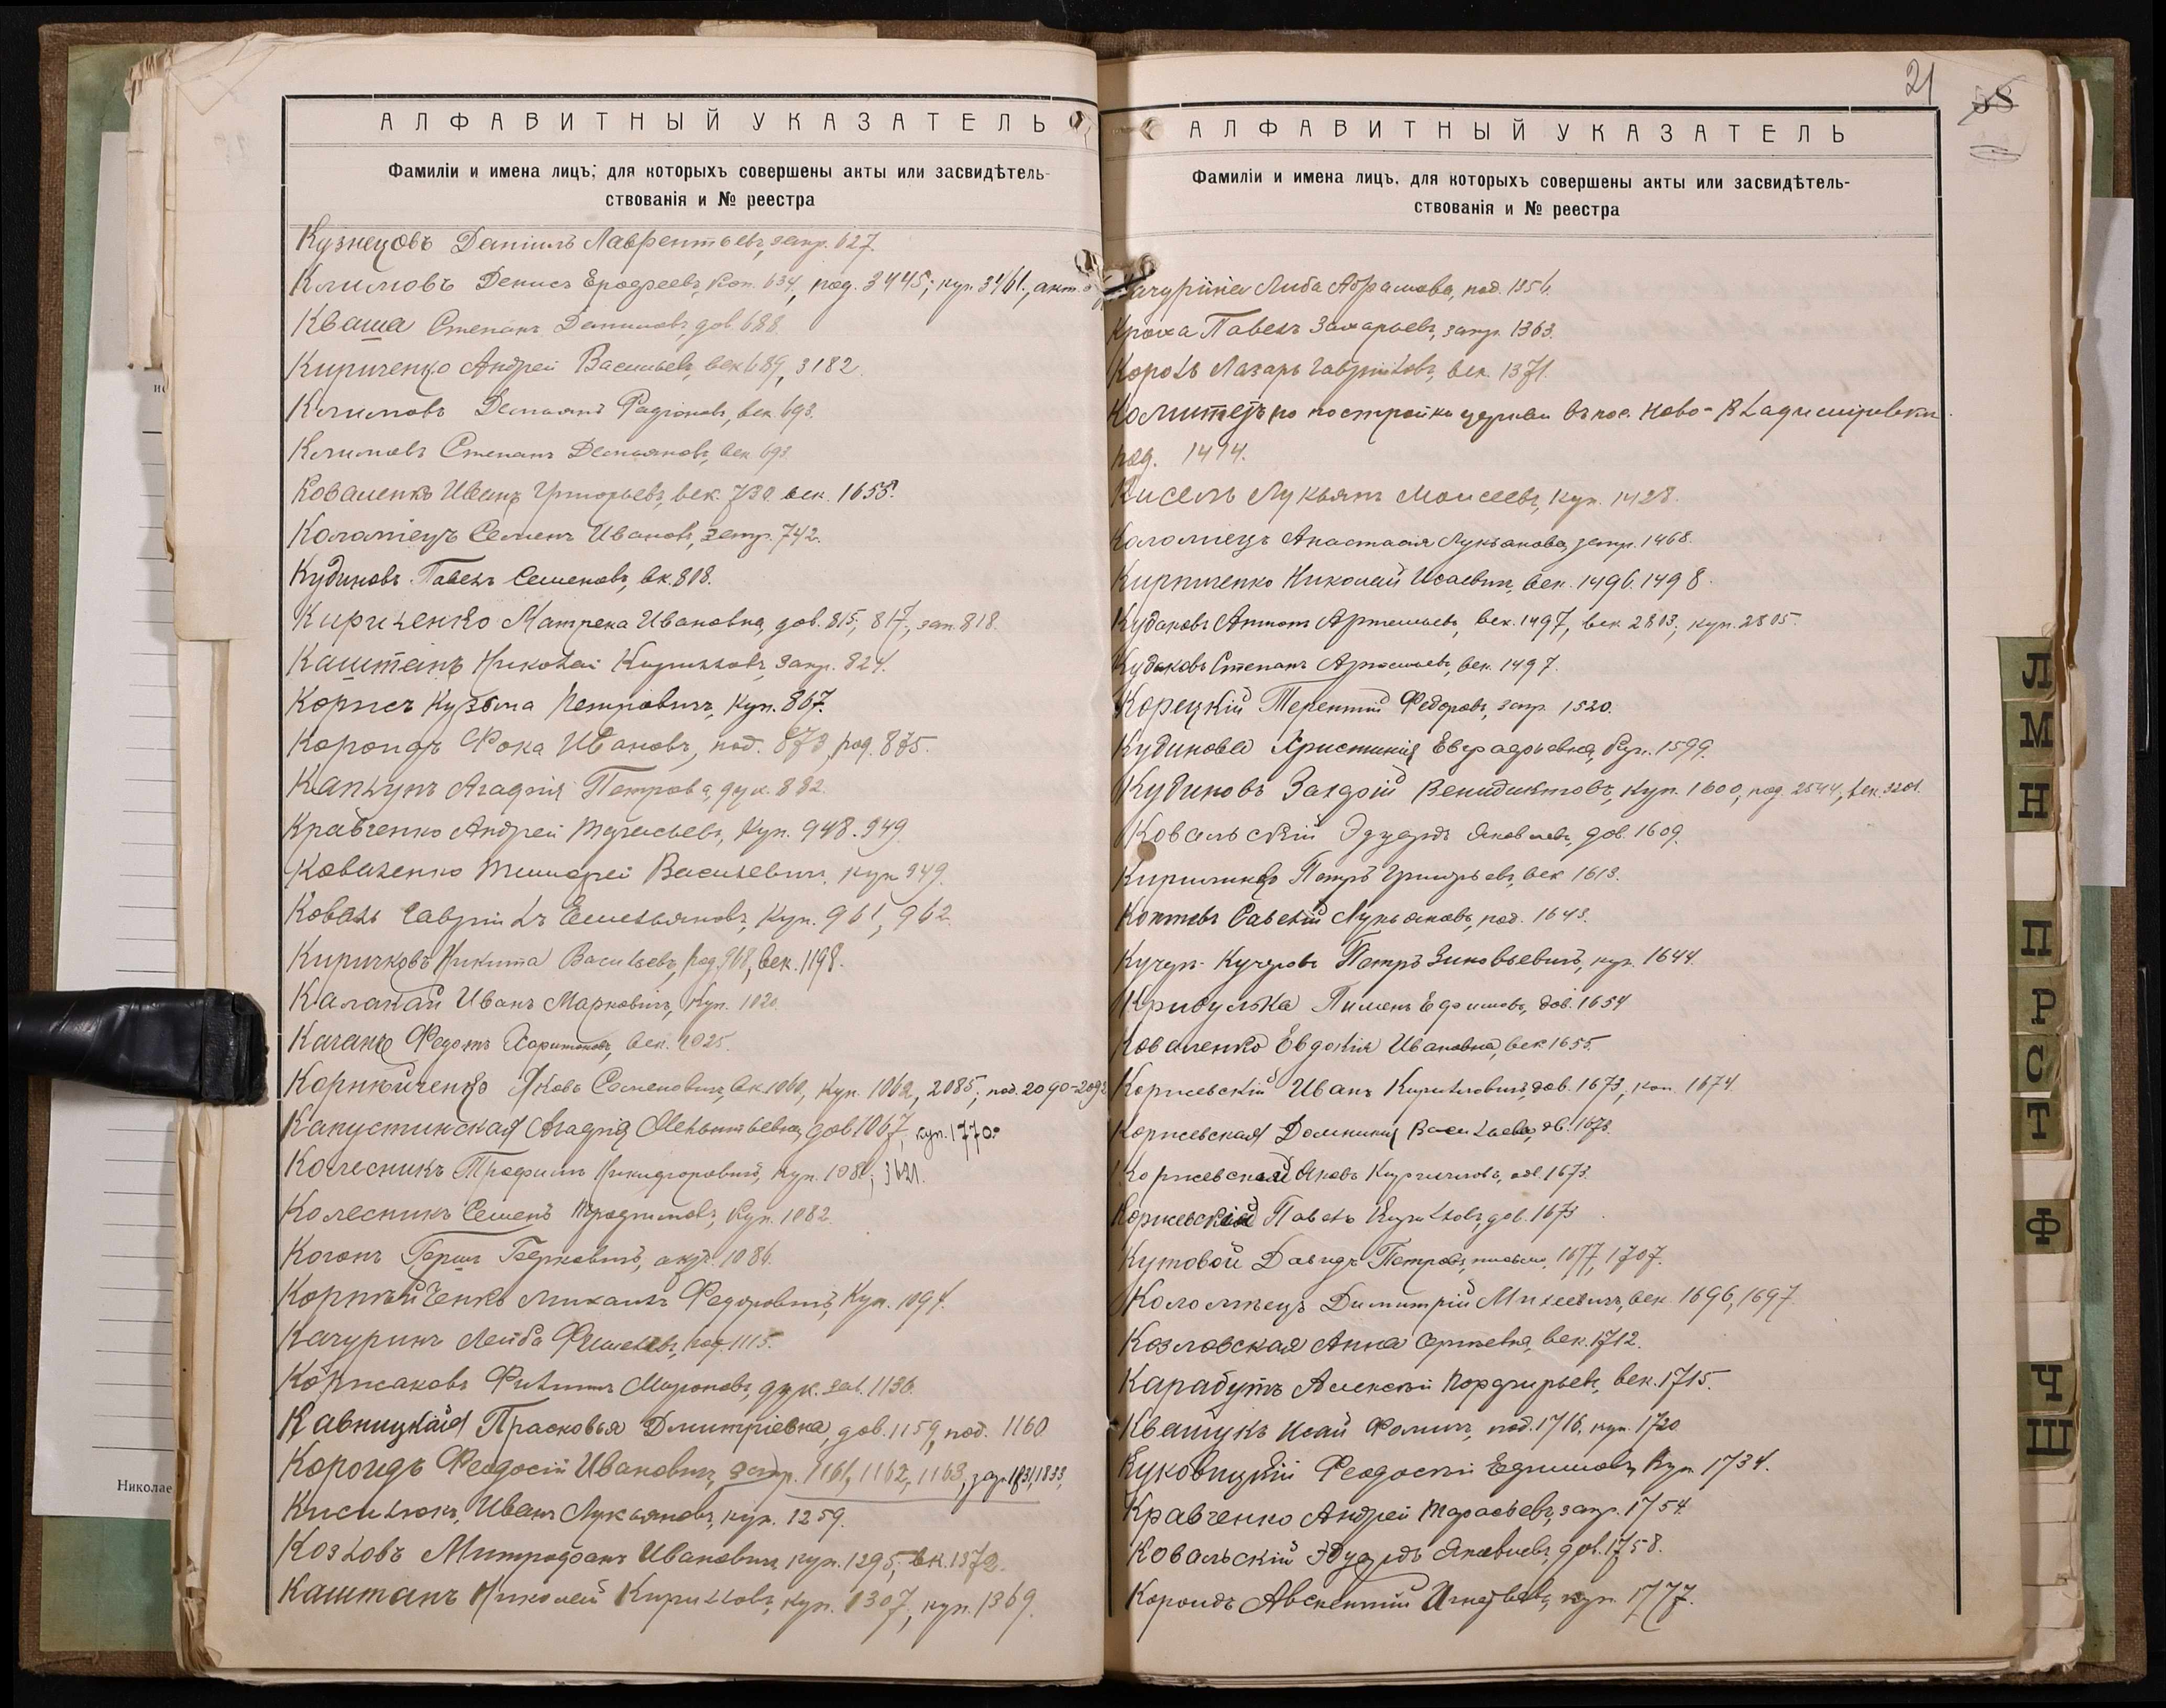 АЛФАВИТНЫЙ УКАЗАТЕЛЬ
Фамиліи и имена лицъ, для которыхъ совершены акты или засвидѣтель-
ствованія и № реестра
Кузнецовъ Даніилъ Лаврентьевъ, запр. 627.
Климовъ Денисъ Ерофеевъ, коп. 634, под. 3445; куп. 3461,
Кваша Степанъ Даниловъ, дов. 688.
Кириченко Андрей Васильевъ, век. 689, 3182.
Климовъ Демьянъ Радіоновъ, век. 693.
Климовъ Степанъ Демьяновъ, век. 693.
Коваленко Иванъ Григорьевъ, век. 730. век. 1655.
Коломіецъ Семенъ Ивановъ, запр. 742.
Кудиновъ Павелъ Семеновъ, вк. 808.
Кириченко Матрена Ивановна, дов. 815, 817, зап. 818.
Каштанъ Николай Кирилловъ, запр. 824.
Коржъ Кузьма Петровичъ, куп. 867.
Короидъ Фока Ивановъ, под. 873, род. 875.
Каплунъ Агафія Петрова, дух. 882.
Кравченко Андрей Тарасьевъ, куп. 948. 949.
Коваленко Тимофей Васильевичъ, куп. 949.
Коваль Гавріилъ Емельяновъ, куп. 961, 962.
Киричковъ Никита Васильевъ, род. 968, век. 1198.
Калакай Иванъ Марковичъ, куп. 1020.
Качанъ Федотъ Харитоновъ, век. 1025.
Корнюйченко Яковъ Семеновичъ, вк. 1060, куп. 1062, 2085; под. 2090-2092
Капустинская Агафія Мелентьевна, дов. 1067, куп. 1770.
Колесникъ Трофимъ Никифоровичъ, куп. 1081, 3621.
Колесникъ Семенъ Трофимовъ, куп. 1082.
Коганъ Гершъ Берковичъ, 1086.
Корнѣйченко Михаилъ Федоровичъ, куп. 1094.
Качуринъ Лейба Фишелевъ, род. 1115.
Корсаковъ Филиппъ Мироновъ, дух. зав. 1136.
Кавницкая Прасковья Дмитріевна, дов. 1159, под. 1160
Короидъ Феодосій Ивановичъ, запр. 1161, 1162, 1163,
Кисилюкъ Иванъ Лукьяновъ, куп. 1259.
Козловъ Митрофанъ Ивановичъ, куп. 1295, вк. 1372.
Каштанъ Николай Кирилловъ, куп. 1307, куп. 1369.
21
58
АЛФАВИТНЫЙ УКАЗАТЕЛЬ
Фамиліи и имена лицъ, для которыхъ совершены акты или засвидѣтель-
ствованія и № реестра
Качурина Либа Абрамова, под. 1356.
Кроха Павелъ Захарьевъ, запр. 1363.
Король Лазарь Гавриловъ, век. 1371.
Комитетъ по постройкѣ церкви въ пос. Ново-Владиміровкѣ
род. 1414.
Кисель Лукьянъ Моисеевъ, куп. 1428.
Коломіецъ Анастасія Лукьянова, запр. 1468.
Кириченко Николай Исаевичъ, век. 1496. 1498.
Кудаковъ Антонъ Артемьевъ, век. 1497, век. 2803; куп. 2805.
Кудаковъ Степанъ Артемьевъ, век. 1497.
Корецкій Терентій Федоровъ, запр. 1520.
Кудинова Христинія Евграфьевна, куп. 1599.
Кудиновъ Венидиктовъ, куп. 1600, род. 2544, век. 3201.
Ковальскій Эдуардъ Яковлевъ, дов. 1609.
Петръ Григорьевъ, век. 1613.
Коптевъ Савелій Лукьяновъ, под. 1643.
Кучеръ-Кучеровъ Петръ Зиновьевичъ, куп. 1644.
Крибулька Пименъ Ефимовъ, дов. 1654
Коваленко Евдокія Ивановна, век. 1655.
Коржевскій Иванъ Кирилловичъ, дов. 1673, коп. 1674
Коржевская Домникія Васильева, дов. 1673.
Коржевскій Яковъ Кирилловъ, дов. 1673.
Коржевскій Павелъ Кирилловъ, дов. 1673
Кутовой Давидъ Петровъ, 1677, 1707.
Коломѣецъ Димитрій Михеевичъ, век. 1696, 1697.
Козловская Анна Сергѣевна, век. 1712.
Карабутъ Алексѣй Порфирьевъ, век. 1715.
Квашукъ Исай Фомичъ, под. 1716, куп. 1720
Куковицкій Феодосій Ефимовъ, куп. 1734.
Кравченко Андрей Тарасьевъ, запр. 1754.
Ковальскій Эдуардъ Яковлевъ, дов. 1758.
Короидъ Авскентій Игнатьевъ, куп. 1777.
Л
М
Н
П
Р
С
Т
Ф
Ч
Ш
Николае